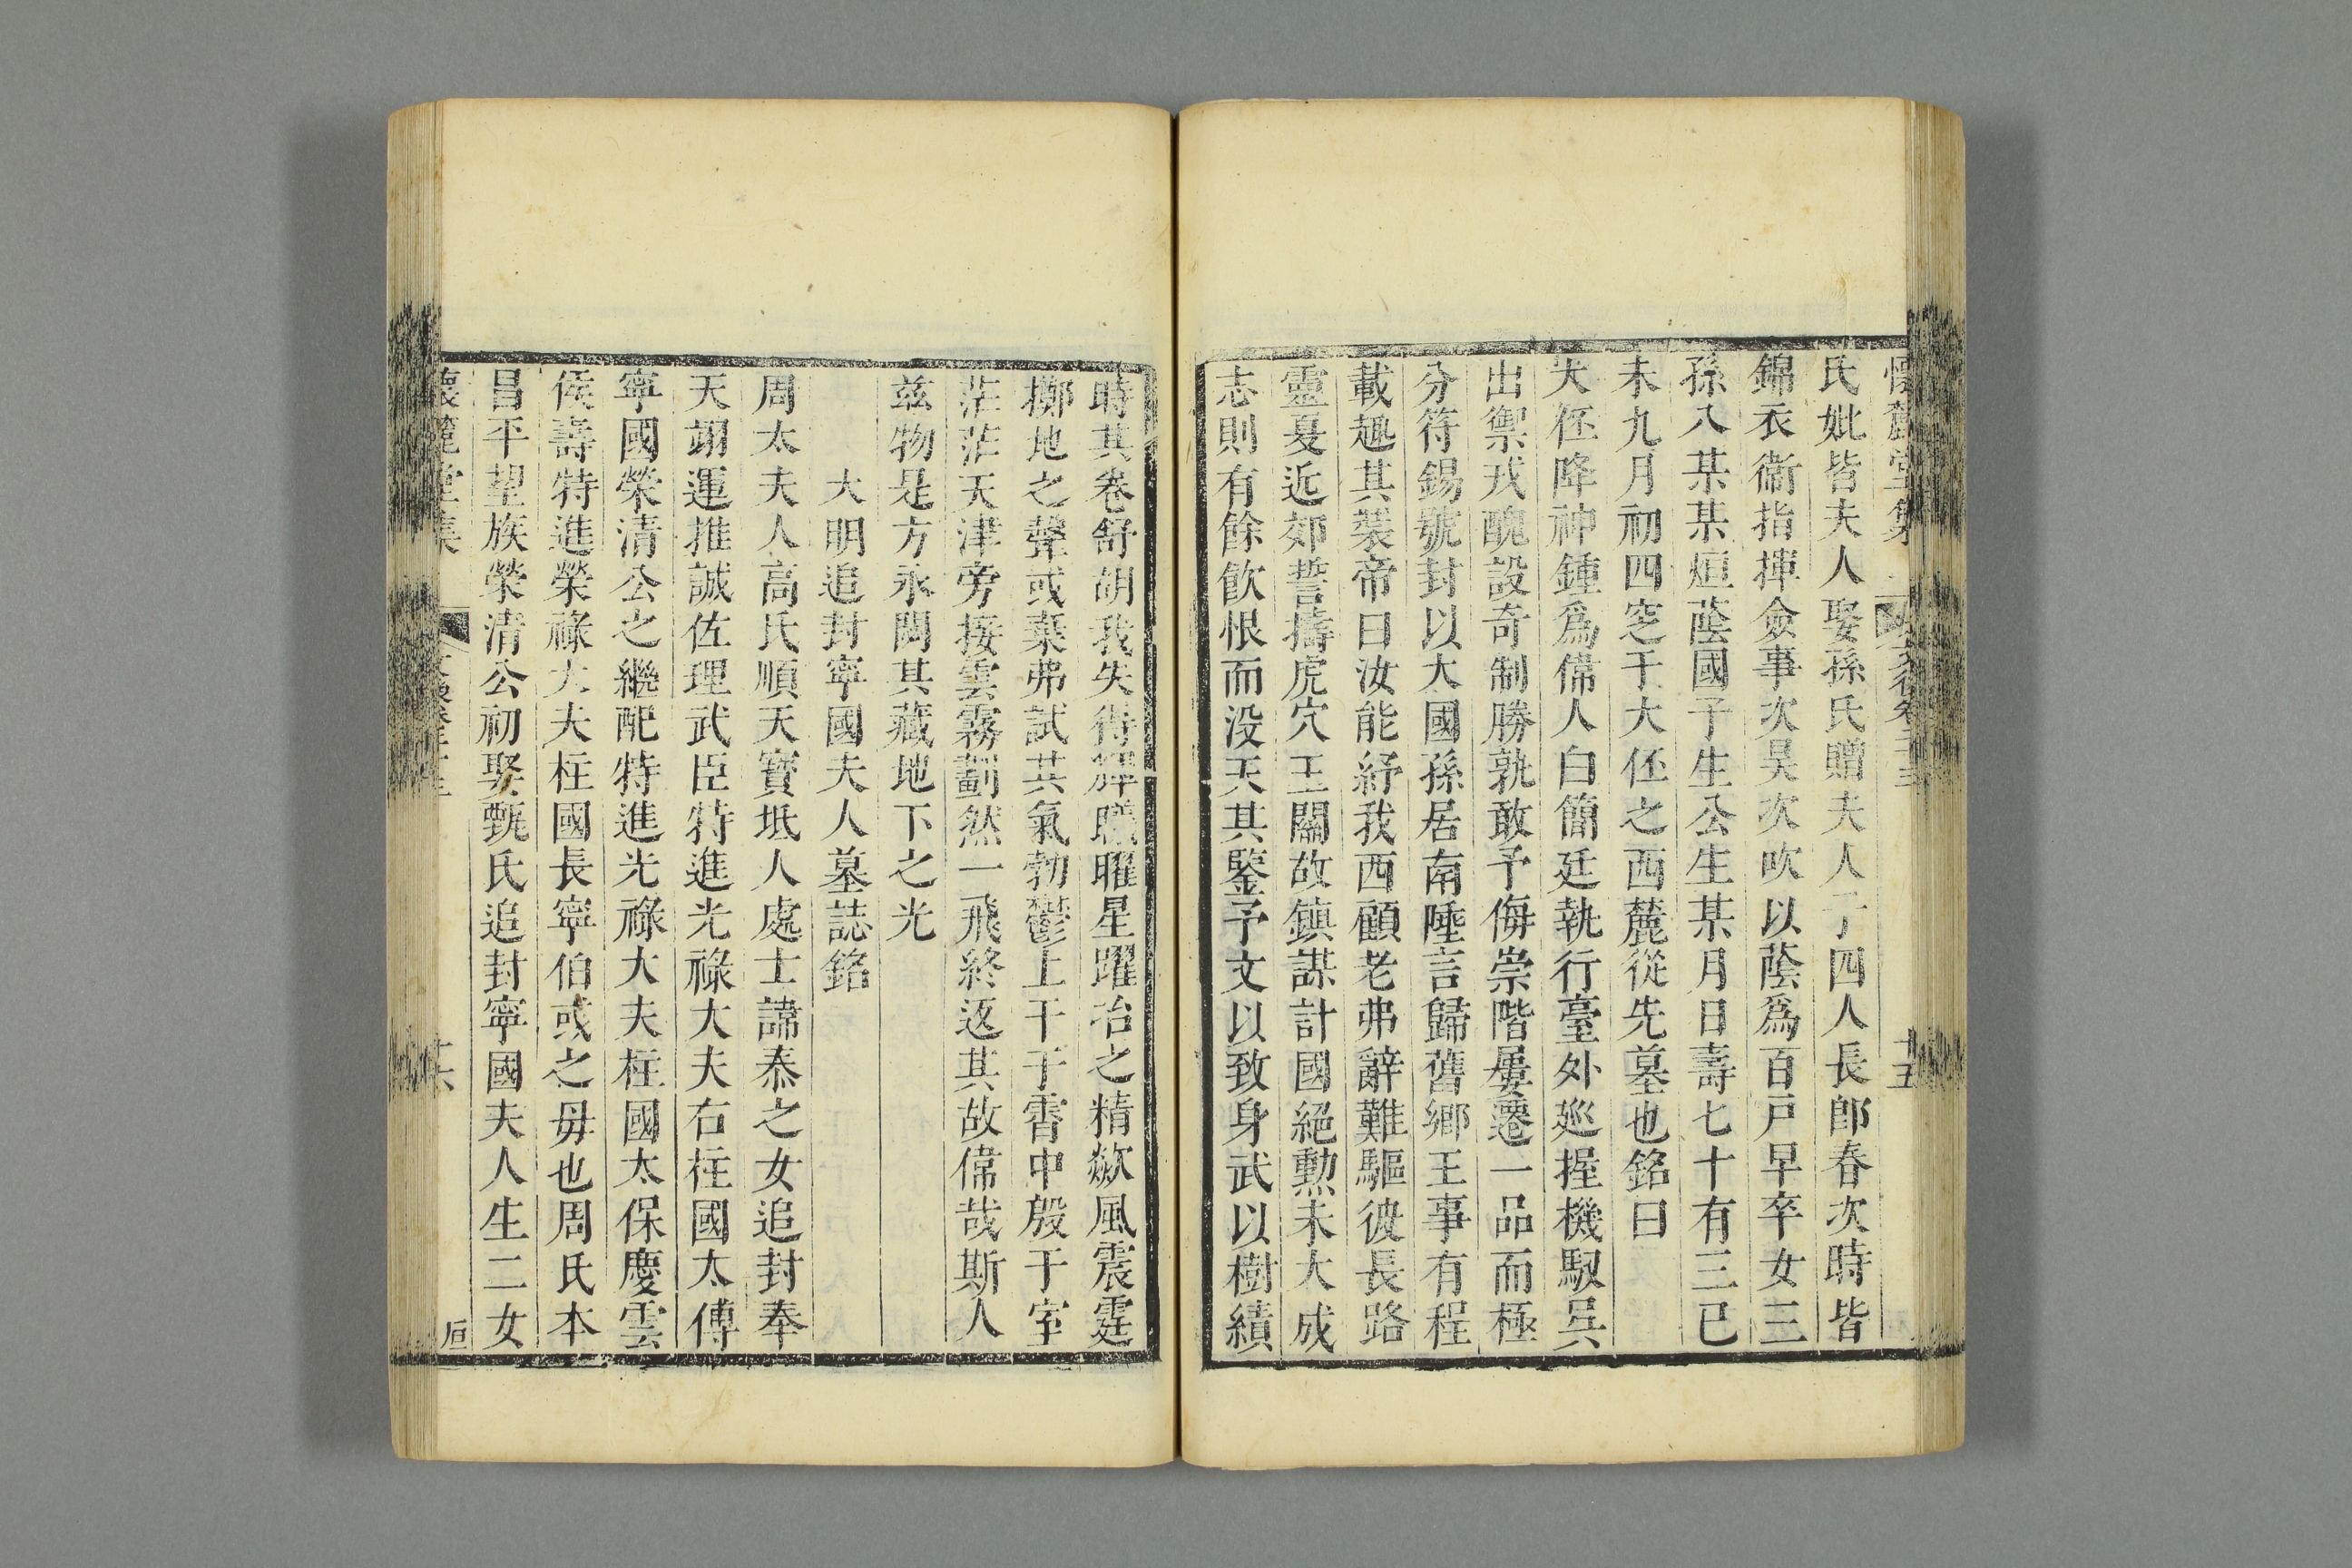 懷麓堂集 文後卷二十五 十五
氏妣皆夫人娶孫氏贈夫人子四人長郎春次時皆
錦衣衞指揮僉事次昊次旼以蔭爲百戶早卒女三
孫八某某烜蔭國子生公生某月日壽七十有三已
未九月初四窆于大伾之西麓從先墓也銘曰
大伾降神鍾爲偉人白簡廷執行臺外廵握機馭兵
出禦戎醜設奇制勝孰敢予侮崇階屢遷一品而極
分符錫號封以大國孫居南陲言歸舊鄉王事有程
載趣其裝帝曰汝能紓我西顧老弗辭難驅彼長路
靈夏近郊誓擣虎穴玉關故鎮謀計國絕勲未大成
志則有餘飮恨而没天其鑒予文以致身武以樹績
時其卷舒胡我失得解 曜星躍冶之精歘風震霆
擲地之聲或棄弗試其氣勃鬱上干于霄中殷于室
茫茫天津旁接雲霧劃然一飛終返其故偉哉斯人
兹物是方永閟其藏地下之光
大明追封寧國夫人墓誌銘
周太夫人高氏順天寶坻人處士諱泰之女追封奉
天翊運推誠佐理武臣特進光祿大夫右柱國太傅
寧國榮清公之繼配特進光祿大夫柱國太保慶雲
侯壽特進榮祿大夫柱國長寧伯或之毋也周氏本
昌平望族榮清公初娶甄氏追封寧國夫人生二女
懷麓堂集 文後卷二十五 十六